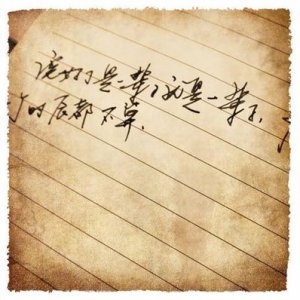 说好了是一辈子就是一辈子,
个时辰都不算.